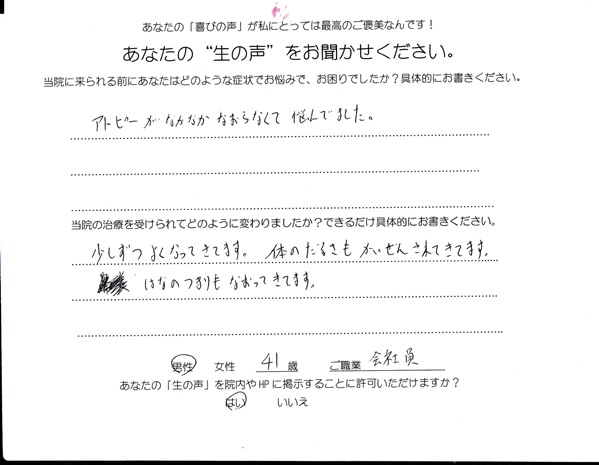 あなたの「喜びの声」が私にとっては最高のご褒美なんです！
あなたの“生の声”をお聞かせください。
当院に来られる前にあなたはどのような症状でお悩みで、お困りでしたか？具体的にお書きください。
アトピーがなかなかなおらなくて悩んでました。
当院の治療を受けられてどのように変わりましたか？できるだけ具体的にお書きください。
少しずつよくなってきてます。体のだるさもかいせんされてきてます。
はなのつまりもなおってきてます。
男性 女性 41歳 ご職業 会社員
あなたの「生の声」を院内やHPに掲示することに許可いただけますか？
はい いいえ